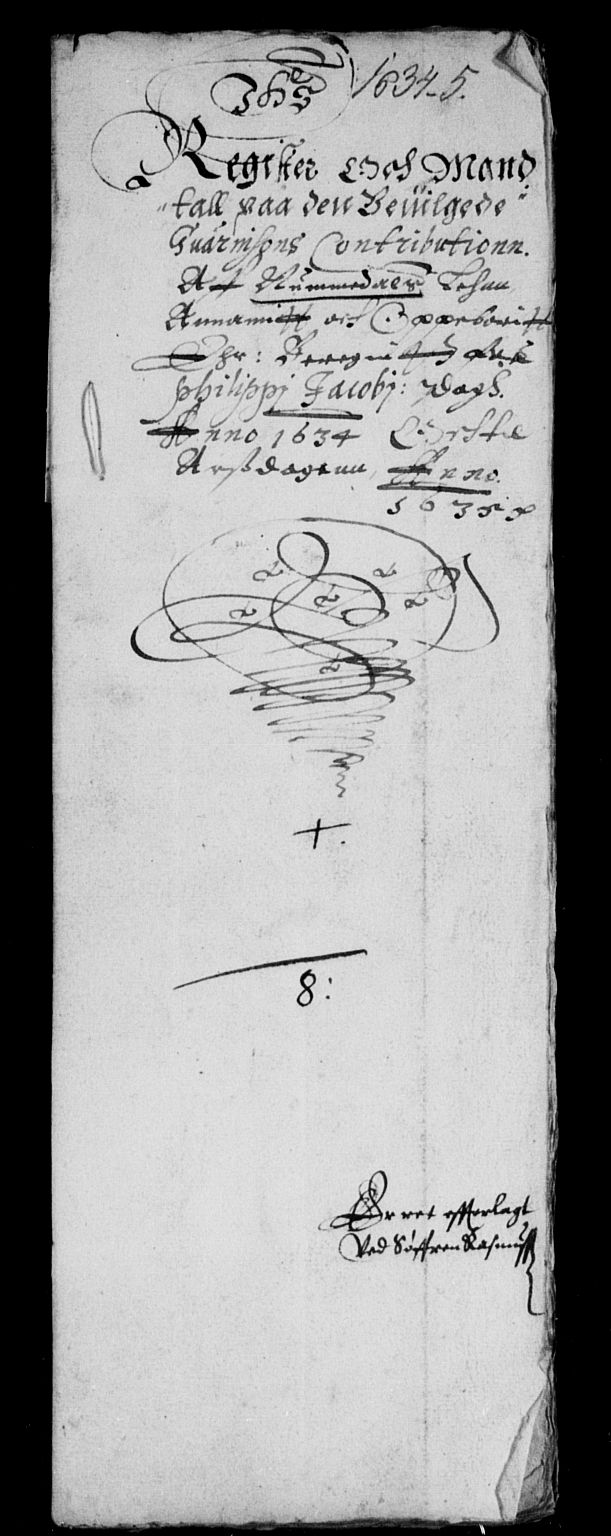 Jhs 1634-5.
Register Och Mand
tall paa den Beuilgede
Guarnisons Contributionn.
Aff Nummedals Lehnn,
Annamitt och Oppeboritt
Ehr: Beregnit fra
Philippj Jacobj: Dagh.
Anno 1634 Och til
Arsdagenn, Anno.
1635
+.
8:
Er ret efterlagt
Ved Søffren Rasmuss